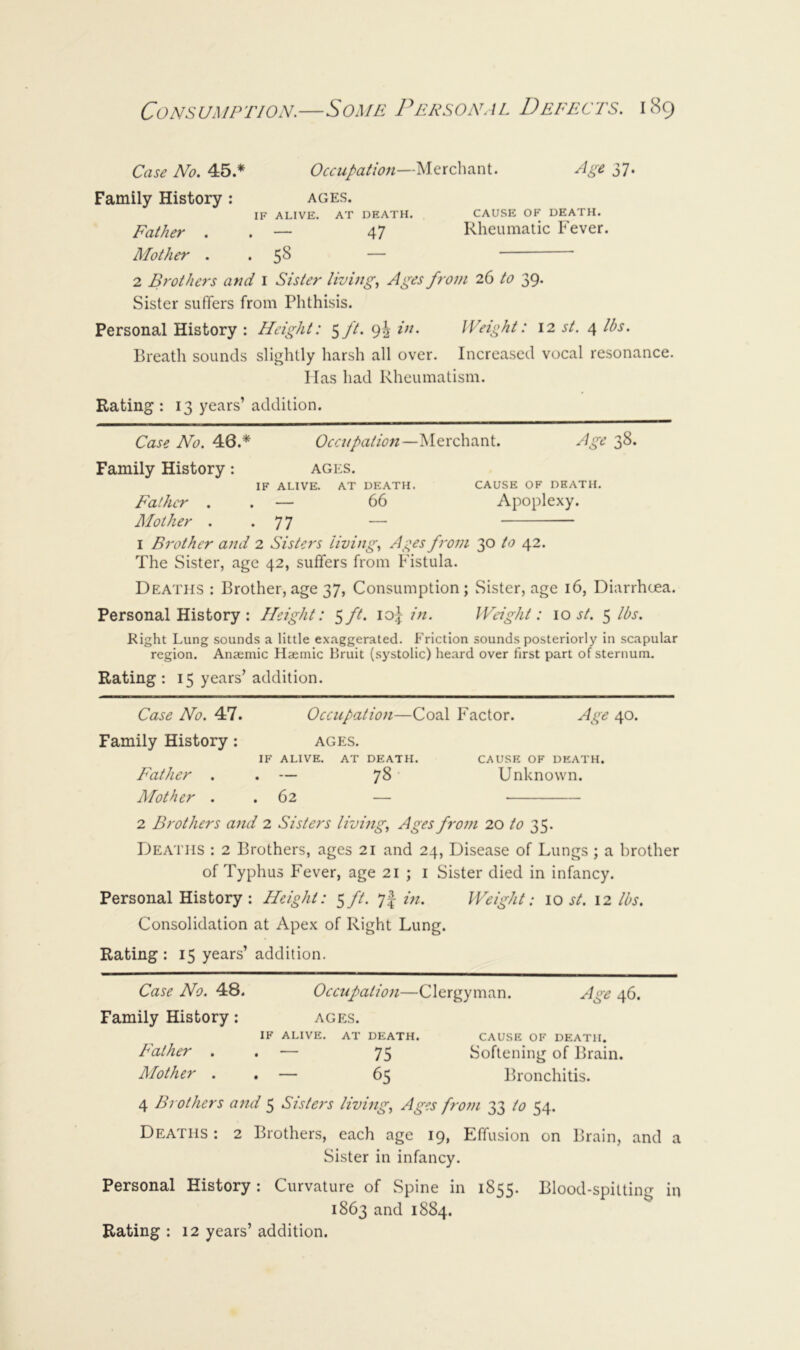 CONSUMPTION.—SOME PERSONAL DEFECTS. 189
Case No. 45.* Occupation—Merchant. Age 37.
Family History : AGES.
IF ALIVE. AT DEATH. CAUSE OF DEATH.
Father . . — 47 Rheumatic Fever.
Mother . . 58 — ———
2 Brothers and 1 Sister living, Ages from 26 to 39.
Sister suffers from Phthisis.
Personal History : Height: 5 ft. 9½ in. Weight: 12 st. 4 lbs.
Breath sounds slightly harsh all over. Increased vocal resonance.
Has had Rheumatism.
Rating : 13 years’ addition.
Case No. 46.* Occupation—Merchant. Age 38.
Family History : AGES.
IF ALIVE. AT DEATH. CAUSE OF DEATH.
Father . . — 66 Apoplexy.
Mother . . 77 — ———
1 Brother and 2 Sisters living, Ages from 30 to 42.
The Sister, age 42, suffers from Fistula.
DEATHS : Brother, age 37, Consumption ; Sister, age 16, Diarrhœa.
Personal History : Height: 5 ft. 10¼ in. Weight: 10 st. 5 lbs.
Right Lung sounds a little exaggerated. Friction sounds posteriorly in scapular
region. Anæmic Hæmic Bruit (systolic) heard over first part of sternum.
Rating : 15 years’ addition.
Case No. 47. Occupation—Coal Factor. Age 40.
Family History : AGES.
IF ALIVE. AT DEATH. CAUSE OF DEATH.
Father . . — 78 Unknown.
Mother . . 62 — ———
2 Brothers and 2 Sisters living, Ages from 20 to 35.
DEATHS : 2 Brothers, ages 21 and 24, Disease of Lungs ; a brother
of Typhus Fever, age 21 ; 1 Sister died in infancy.
Personal History : Height: 5 ft. 7¾ in. Weight: 10 st. 12 lbs.
Consolidation at Apex of Right Lung.
Rating : 15 years’ addition.
Case No. 48. Occupation—Clergyman. Age 46.
Family History : AGES.
IF ALIVE. AT DEATH. CAUSE OF DEATH.
Father . . — 75 Softening of Brain.
Mother . . — 65 Bronchitis.
4 Brothers and 5 Sisters living, Ages from 33 to 54.
DEATHS : 2 Brothers, each age 19, Effusion on Brain, and a
Sister in infancy.
Personal History : Curvature of Spine in 1855. Blood-spitting in
1863 and 1884.
Rating : 12 years’ addition.